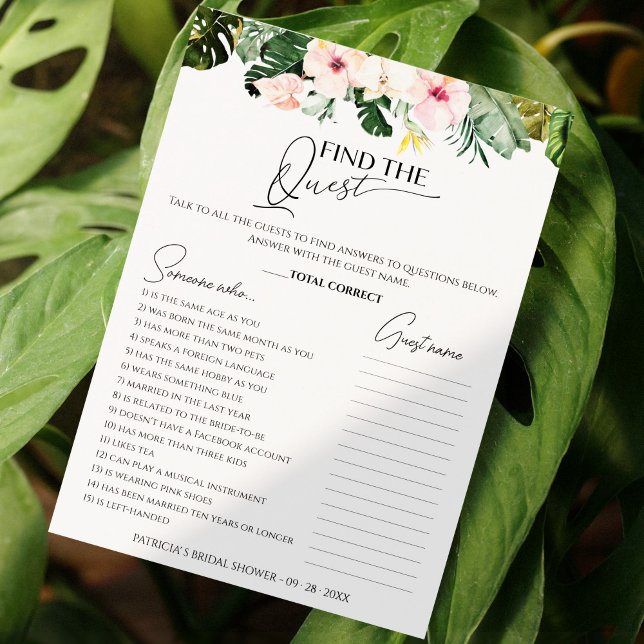 FIND THE
Quest
TALK TO ALL THE GUESTS TO FIND ANSWERS TO QUESTIONS BELOW.
ANSWER WITH THE GUEST NAME.
____TOTAL CORRECT
Someone who...
Guest name
1) IS THE SAME AGE AS YOU
2) WAS BORN THE SAME MONTH AS YOU
3) HAS MORE THAN TWO PETS
4) SPEAKS A FOREIGN LANGUAGE
5) HAS THE SAME HOBBY AS YOU
6) WEARS SOMETHING BLUE
7) MARRIED IN THE LAST YEAR
8) IS RELATED TO THE BRIDE-TO-BE
9) DOESN'T HAVE A FACEBOOK ACCOUNT
10) HAS MORE THAN THREE KIDS
11) LIKES TEA
12) CAN PLAY A MUSICAL INSTRUMENT
13) IS WEARING PINK SHOES
14) HAS BEEN MARRIED TEN YEARS OR LONGER
15) IS LEFT-HANDED
PATRICIA'S BRIDAL SHOWER - 09 · 28 · 20XX